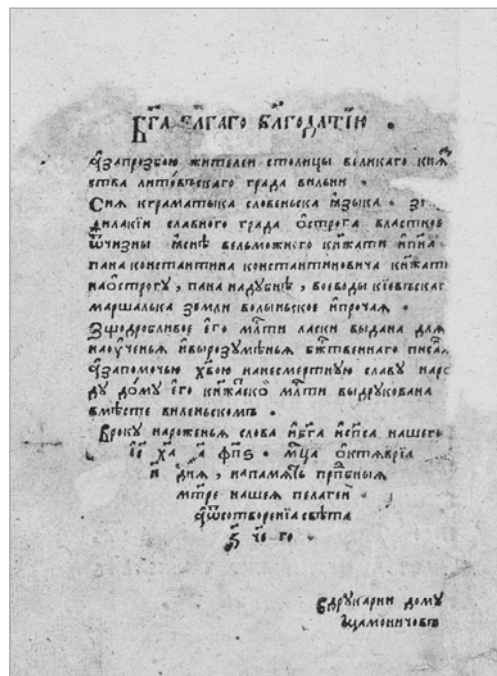 Бг҃а бл҃гаго бл҃годатїю .
а҆ запрозбою жителей столицы великаго кн҃ѧ
ства литовъскаго града вильни .
Сиѧ кграматыка словеньска ꙗ҆зыка .
дилакїи славного града ѻ҆строга властное
ѿчизны вельможного кн҃жати и҆ п҃на
пана константина константиновича кн҃жати
на ѻ҆строгу , пана на дубнѣ , воеводы кїевъскаг
маршалька земли волыньское и҆ прочаѧ .
Зщодробливое е҆го мл҃ти ласки выдана длѧ
наѹ҆ченьѧ и҆ вырозумѣньѧ бж҃твеннаго писа
а҆ запомочью х҃вою на несмертную славу наро
ду до́му е҆го кн҃жаско мл҃ти выдрукована
вмѣсте виленьскомъ .
Вроку нароженьѧ слова и҆ бг҃а и҆ сп҃са нашего
і҆с҃ х҃а ҂а҃ фп҃ѕ . мц҃а ѻ҆ктѧврїа
и҃ днѧ , на памѧть прп҃бныѧ
мт҃ре нашеѧ пелагеи
а҆ ѿ сотворенїа свѣта
҂ѕ҃ ч҃е го .
Здрукарни дому
мамоничовъ